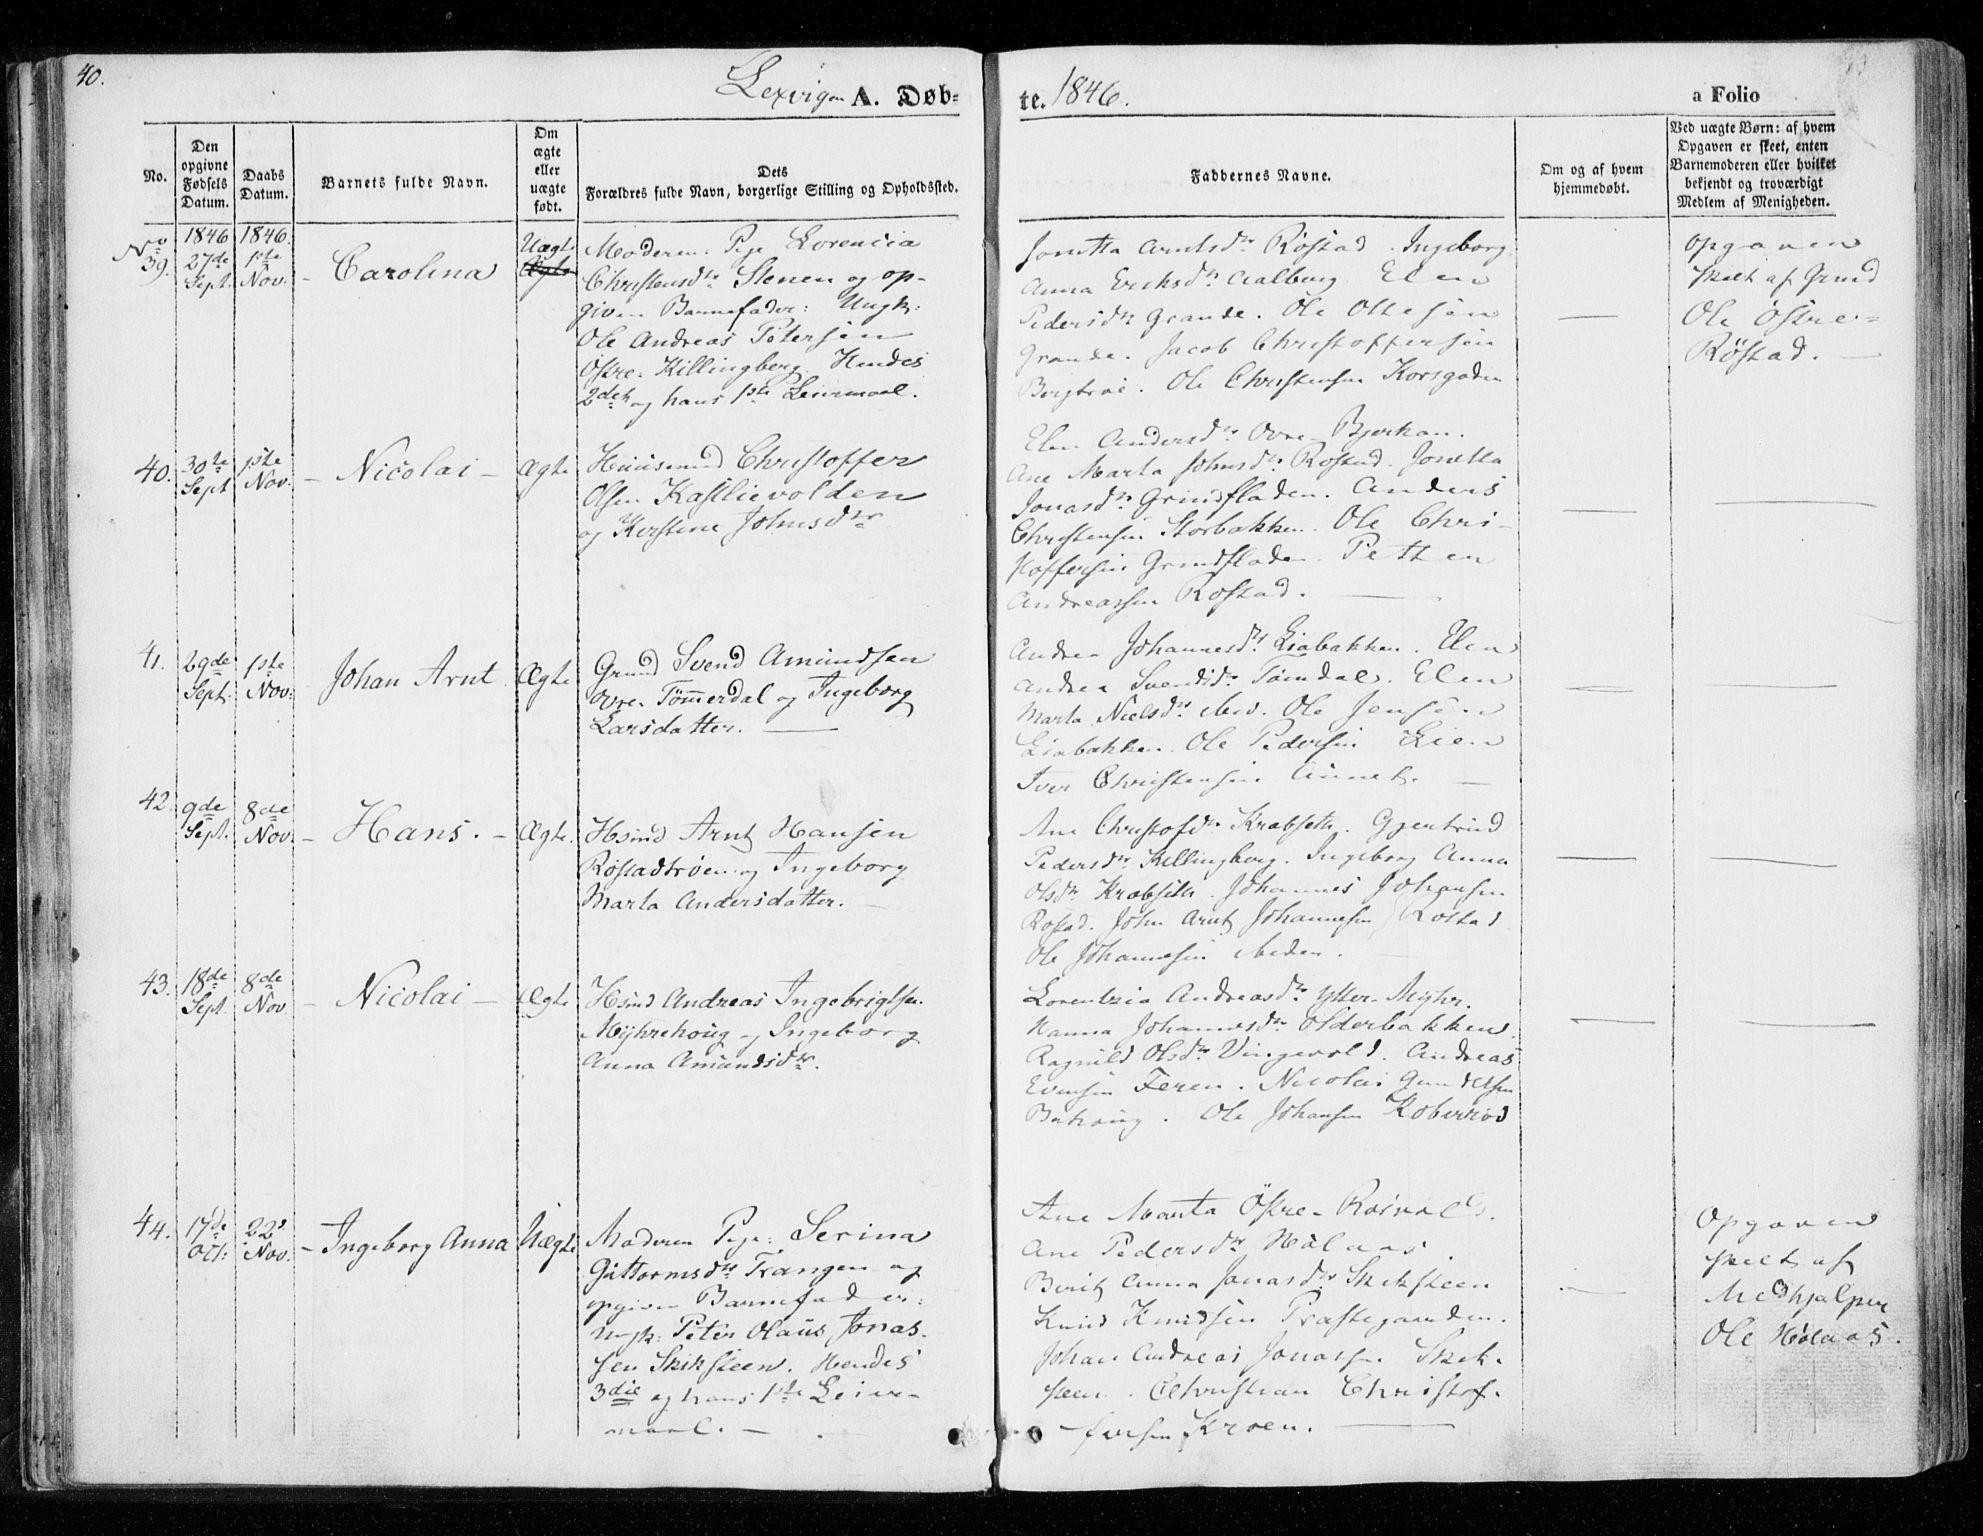 40.
Lexvigen A. Døb=
te. 1846.
a Folio
No.
Den opgivne Fødsels Datum.
Daabs Datum.
Barnets fulde Navn.
Om ægte eller uægte født.
Dets
Forældres fulde Navn, borgerlige Stilling og Opholdssted.
Faddernes Navne.
Om og af hvem hjemmedøbt.
Ved uægte Børn: af hvem
Opgaven er skeet, enten
Barnemoderen eller hvilket
bekjendt og troværdigt
Medlem af Menigheden.
No 39.
1846 27de Sept.
1846. 1ste Nov.
- Carolina
Uægte
Ægte
Moderen: Pige Lorencia
Christensdtr Stenen og op-
given Barnefader: Ungk:
Ole Andreas Petersen
Østre-Killingberg. Hendes
2det og hans 1ste Leiermaal.
Jonetta Arntsdtr Røstad. Ingeborg
Anna Eriksdtr Aalberg. Elen
Pedersdtr Grande. Ole Ottesen
Grande. Jacob Christoffersen
Ole Christensen Korsgaden
Opgaven
skeet af Grund
Ole Østre-
Røstad. -
40.
30te Sept
1ste Nov.
- Nicolai -
Ægte
Huusmand Christoffer
Olsen Kastlievolden
og Kirstine Johnsdtr
Elen Andersdtr Øvre-Bjerkan.
Ane Marta Johnsdtr Røstad. Jonetta
Jonasdtr Grindfladen. Anders
Christensen Storbakken. Ole Chri-
stoffersen Grindfladen. Petter
Andreassen Røstad.
41.
29de Sept.
1ste Nov.
Johan Arnt
Ægte
Grund Svend Amundsen
Øvre-Tömmerdal og Ingeborg
Larsdatter.
Andrea Johannesdtr Liabakken. Elen
Andrea Svendsdtr Tömdal. Elen
Marta Nielsdtr ibid. Ole Jensen
Liabakken. Ole Pedersen Lien
Iver Christensen Aünet.
42.
9de Sept.
8de Nov.
- Hans. -
Ægte.
Hsmd Arnt Hansen
Røstadtrøen og Ingeborg
Marta Andersdatter.
Ane Christofdtr Krabseth. Gjertrud
Pedersdtr Killingberg. Ingeborg Anna
Olsdtr Krabseth. Johannes Johansen
Røstad. John Arnt Johannesen Røstad
Ole Johannesen ibiden.
43.
18de Sept.
8de Nov
- Nicolai -
Ægte
Hsmd Andreas Ingebrigtsen.
Myhrehoug og Ingeborg
Anna Amundsdtr.
Lorentzia Andreasdtr Ytter-Myhr.
Hanna Johannesdtr Olderbakken.
Ragnild Olsdtr Vingevold. Andreas
Evensen Feren. Nicolai Gundersen
Ole Johansen Koberrød
44.
17de Oct:
22d Nov.
- Ingeborg Anna
Uægte
Moderen Pige: Serina
Güttormsdtr Trangen og
opgiven Barnefader:
Ungk: Peter Olaüs Jonas-
sen Skiksteen. Hendes
3die og hans 1ste Leier-
maal. -
Ane Marta Østre-Rosvold.
Ane Pedersdtr Hölaas.
Berit Anna Jonasdtr Skeksteen
Knud Knudsen Præstegaarden.
Johan Andreas Jonassen Skek-
steen. Christian Christof-
fersen Kroen.
Opgaven
skeet af
Medhjælper
Ole Hölaas.